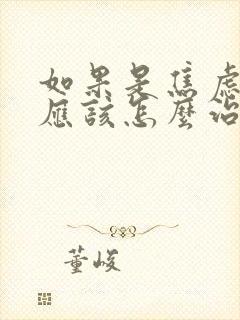 如果是焦慮
應該怎麼治
董峻